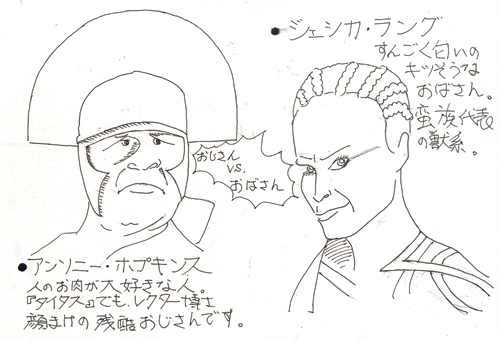 ジェシカ・ラング
すんごく匂いの
キツそうな
おばさん。
蛮族代表
の獣系。
おじさん
vs.
おばさん
アンソニー・ホプキンス
人のお肉が大好きな人。
『タイタス』でも、レクター博士
顔まけの残酷おじさんです。